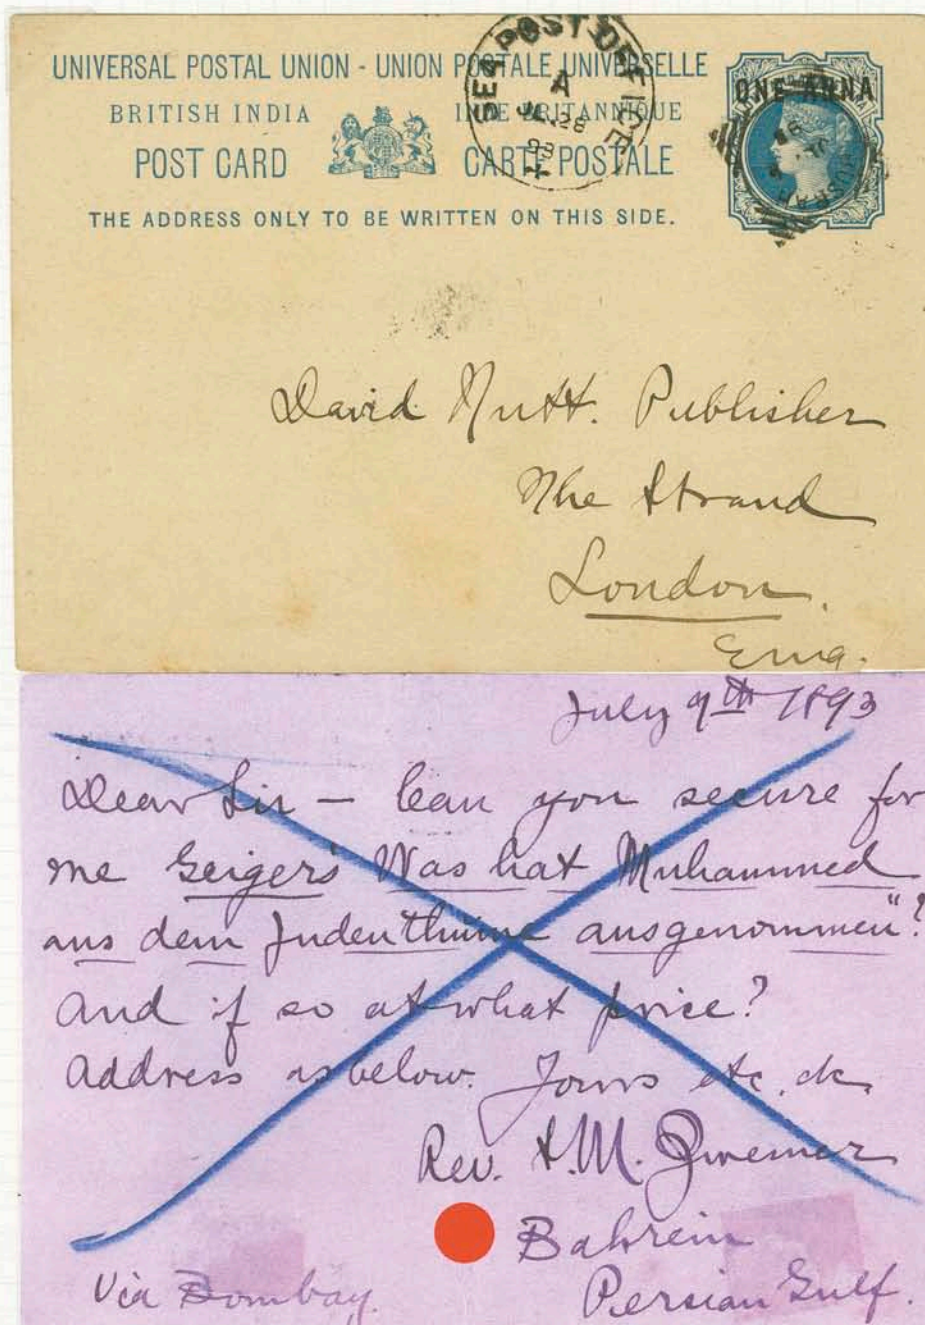 UNIVERSAL POSTAL UNION - UNION POSTALE UNIVERSELLE
BRITISH INDIA INDE BRITANNIQUE
POST CARD CARTE POSTALE
THE ADDRESS ONLY TO BE WRITTEN ON THIS SIDE.
SEA POST OFFICE
A
28
93
ONE ANNA
David Nutt. Publisher
The Strand
London.
Eng.
July 9th 1893
Dear Sir – Can you secure for
me Geiger's Was hat Muhammed
aus dem Judenthume ausgenommen"?
And if so at what price?
Address as below. Yours etc.
Rev. S.M. Zwemer
Bahrein
Via Bombay. Persian Gulf.